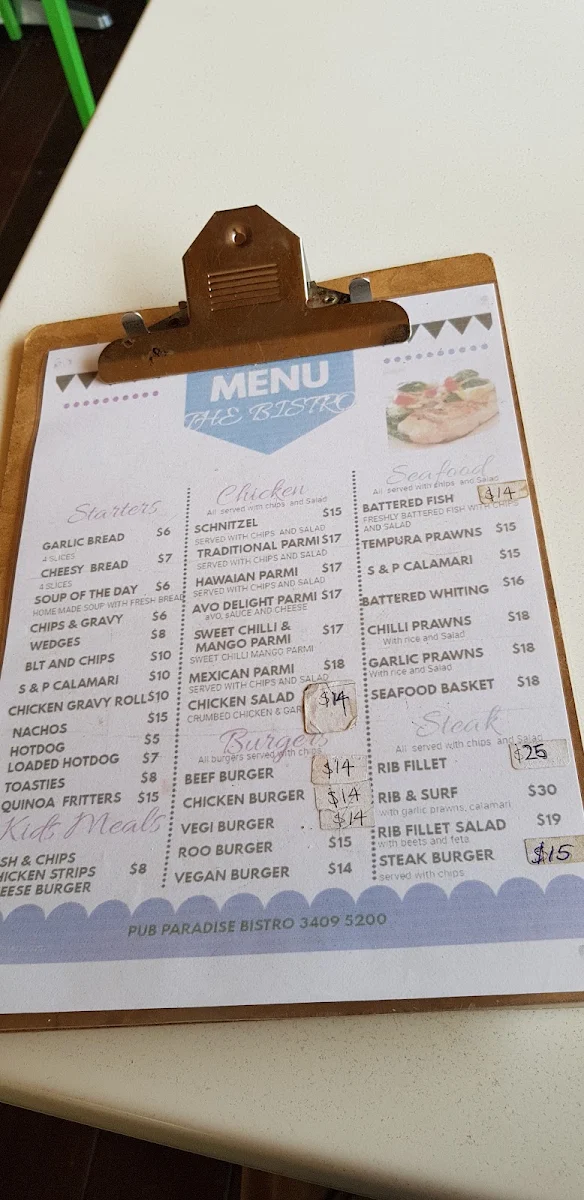 MENU
THE BISTRO
Starters
GARLIC BREAD $6
4 SLICES
CHEESY BREAD $7
4 SLICES
SOUP OF THE DAY $6
HOME MADE SOUP WITH FRESH BREAD
CHIPS & GRAVY $6
WEDGES $8
BLT AND CHIPS $10
S & P CALAMARI $10
CHICKEN GRAVY ROLL $10
NACHOS $15
HOTDOG $5
LOADED HOTDOG $7
TOASTIES $8
QUINOA FRITTERS $15
Kids Meals
SH & CHIPS
HICKEN STRIPS $8
EESE BURGER
Chicken
All served with chips and Salad
SCHNITZEL $15
SERVED WITH CHIPS AND SALAD
TRADITIONAL PARMI $17
SERVED WITH CHIPS AND SALAD
HAWAIAN PARMI $17
SERVED WITH CHIPS AND SALAD
AVO DELIGHT PARMI $17
aVO, sAUCE AND CHEESE
SWEET CHILLI &
MANGO PARMI $17
SWEET CHILLI MANGO PARMI
MEXICAN PARMI $18
SERVED WITH CHIPS AND SALAD
CHICKEN SALAD $14
CRUMBED CHICKEN & GAR
Burgers
All burgers served with chips
BEEF BURGER $14
CHICKEN BURGER $14
VEGI BURGER $14
ROO BURGER $15
VEGAN BURGER $14
Seafood
All served with chips and Salad
BATTERED FISH $14
FRESHLY BATTERED FISH WITH CHIPS
AND SALAD
TEMPURA PRAWNS $15
S & P CALAMARI $15
BATTERED WHITING $16
CHILLI PRAWNS $18
With rice and Salad
GARLIC PRAWNS $18
With rice and Salad
SEAFOOD BASKET $18
Steak
All served with chips and Salad
RIB FILLET $25
RIB & SURF $30
with garlic prawns, calamari
RIB FILLET SALAD $19
with beets and feta
STEAK BURGER $15
served with chips
PUB PARADISE BISTRO 3409 5200